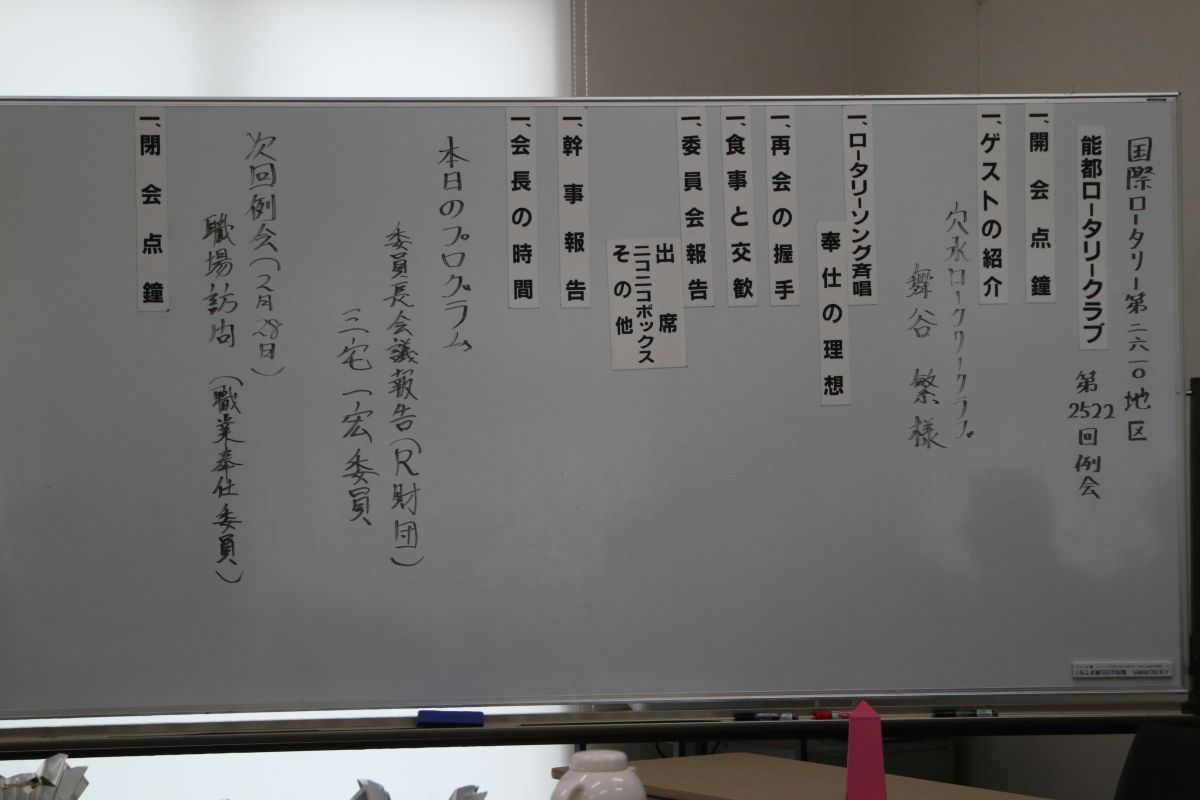 国際ロータリー第二六一〇地区
能都ロータリークラブ 第2522回例会
一、開会点鐘
一、ゲストの紹介
穴水ロータリークラブ
舞谷 繁様
一、ロータリーソング斉唱
奉仕の理想
一、再会の握手
一、食事と交歓
一、委員会報告
出席
ニコニコボックス
その他
一、幹事報告
一、会長の時間
本日のプログラム
委員長会議報告(R財団)
三宅一宏委員
次回例会(2月28日)
職場訪問(職業奉仕委員)
一、閉会点鐘